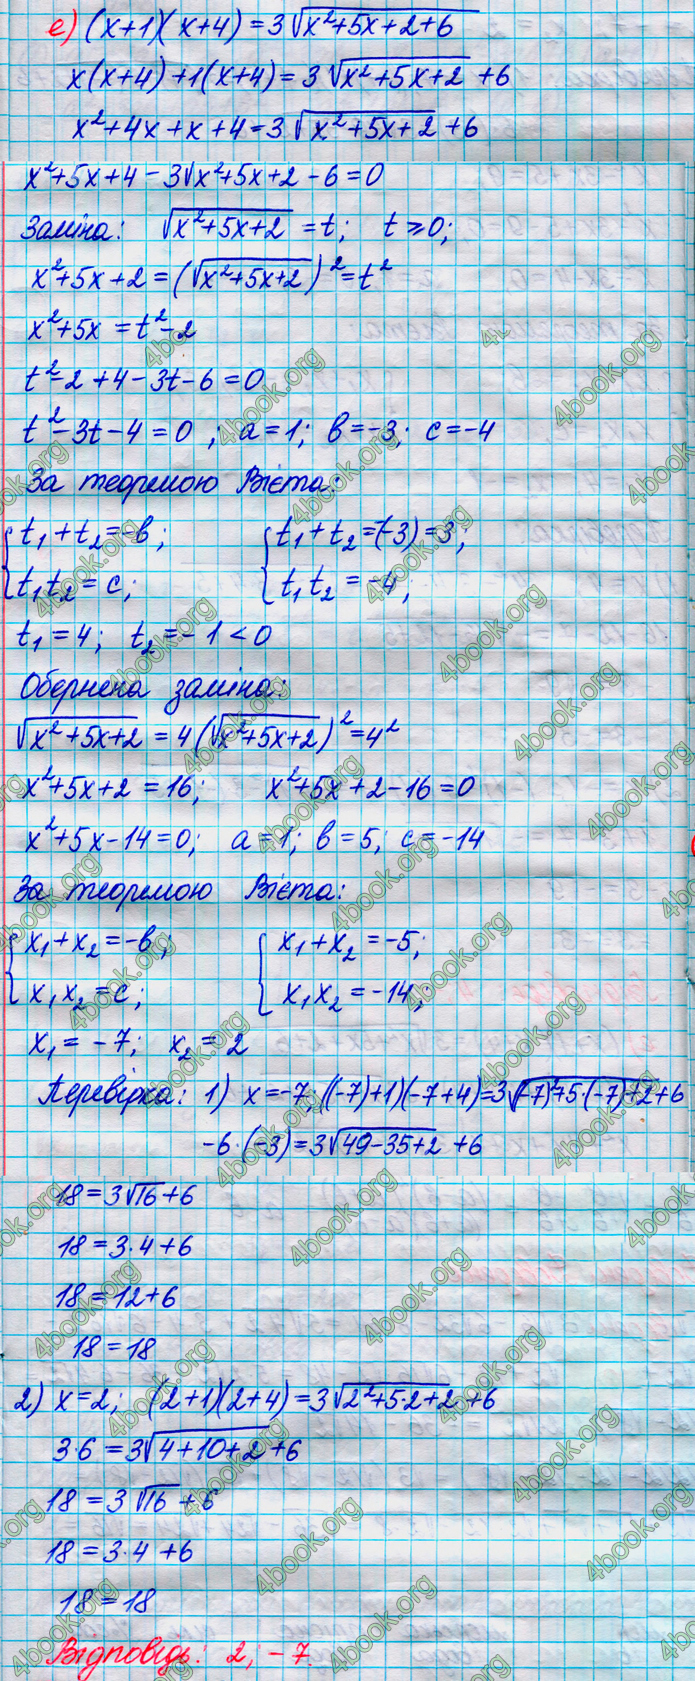 е) (x+1)(x+4) = 3√(x²+5x+2+6)
x(x+4)+1(x+4) = 3√(x²+5x+2) +6
x²+4x+x+4 = 3√(x²+5x+2) +6
x²+5x+4 - 3√x²+5x+2 - 6 = 0
Заміна: √(x²+5x+2) = t; t ⩾ 0;
x²+5x+2 = (√(x²+5x+2))² = t²
x²+5x = t²-2
t²-2+4-3t-6 = 0
t²-3t-4 = 0 ; a=1; в=-3; c=-4
За теоремою Вієта:
{t₁+t₂=-в; {t₁+t₂=-(-3)=3;
{t₁t₂=c; {t₁t₂=-4;
t₁=4; t₂=-1<0
Обернена заміна:
√(x²+5x+2) = 4 (√(x²+5x+2))² = 4²
x²+5x+2 = 16; x²+5x+2-16=0
x²+5x-14=0; a=1; в=5; c=-14
За теоремою Вієта:
{x₁+x₂=-в; {x₁+x₂=-5;
{x₁x₂=c; {x₁x₂=-14;
x₁=-7; x₂=2
Перевірка: 1) x=-7; ((-7)+1)(-7+4)=3√((-7)²+5·(-7)+2)+6
-6·(-3)=3√(49-35+2) +6
18=3√16+6
18=3·4+6
18=12+6
18=18
2) x=2; (2+1)(2+4)=3√(2²+5·2+2)+6
3·6=3√(4+10+2)+6
18=3√16+6
18=3·4+6
18=18
Відповідь: 2; -7.
4book.org